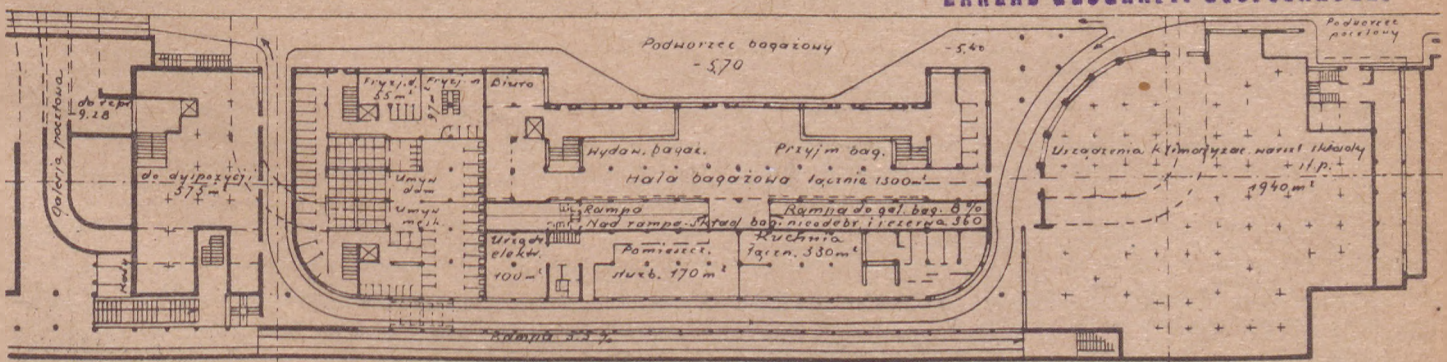 Podworzec bagażowy
- 5,70
- 5.40
Podworzec
pocztowy
Galeria pocztowa
do repr.
9.28
do dyspozycji
575 m²
Fryzj. d.
55 m²
Fryzj. m
97 m²
Biuro
Wydaw. bagaż.
Przyjm bag.
Hala bagażowa łącznie 1300 m²
Umyw
dam
Umyw
męsk
Rampa
Rampa do gal. bag. 6 %
Nad rampą skład bag. nieodebr. i rezerwa 360
Urządz
elektr.
100 m²
Pomieszcz.
służb. 170 m²
Kuchnia
łączn. 330 m²
Urządzenia klimatyzac. warszt składy
i t. p.
1940 m²
Rampa 5.5 %